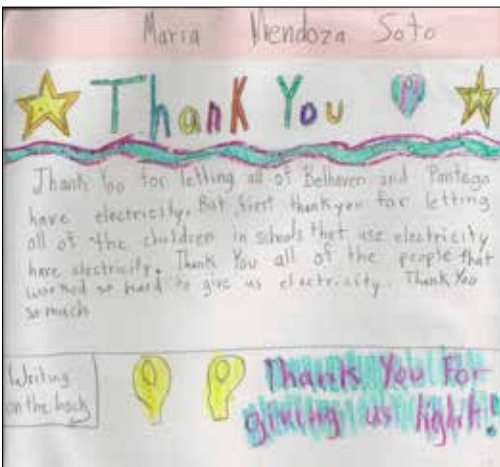 Maria Mendoza Soto
Thank You
Thank You for letting all of Belhaven and Pantego
have electricity. But first thankyou for letting
all of the children in schools that use electricity
have electricity. Thank You all of the people that
worked so hard to give us electricity. Thank You
so much
Writing
on the back
Thank You For
giving us light!